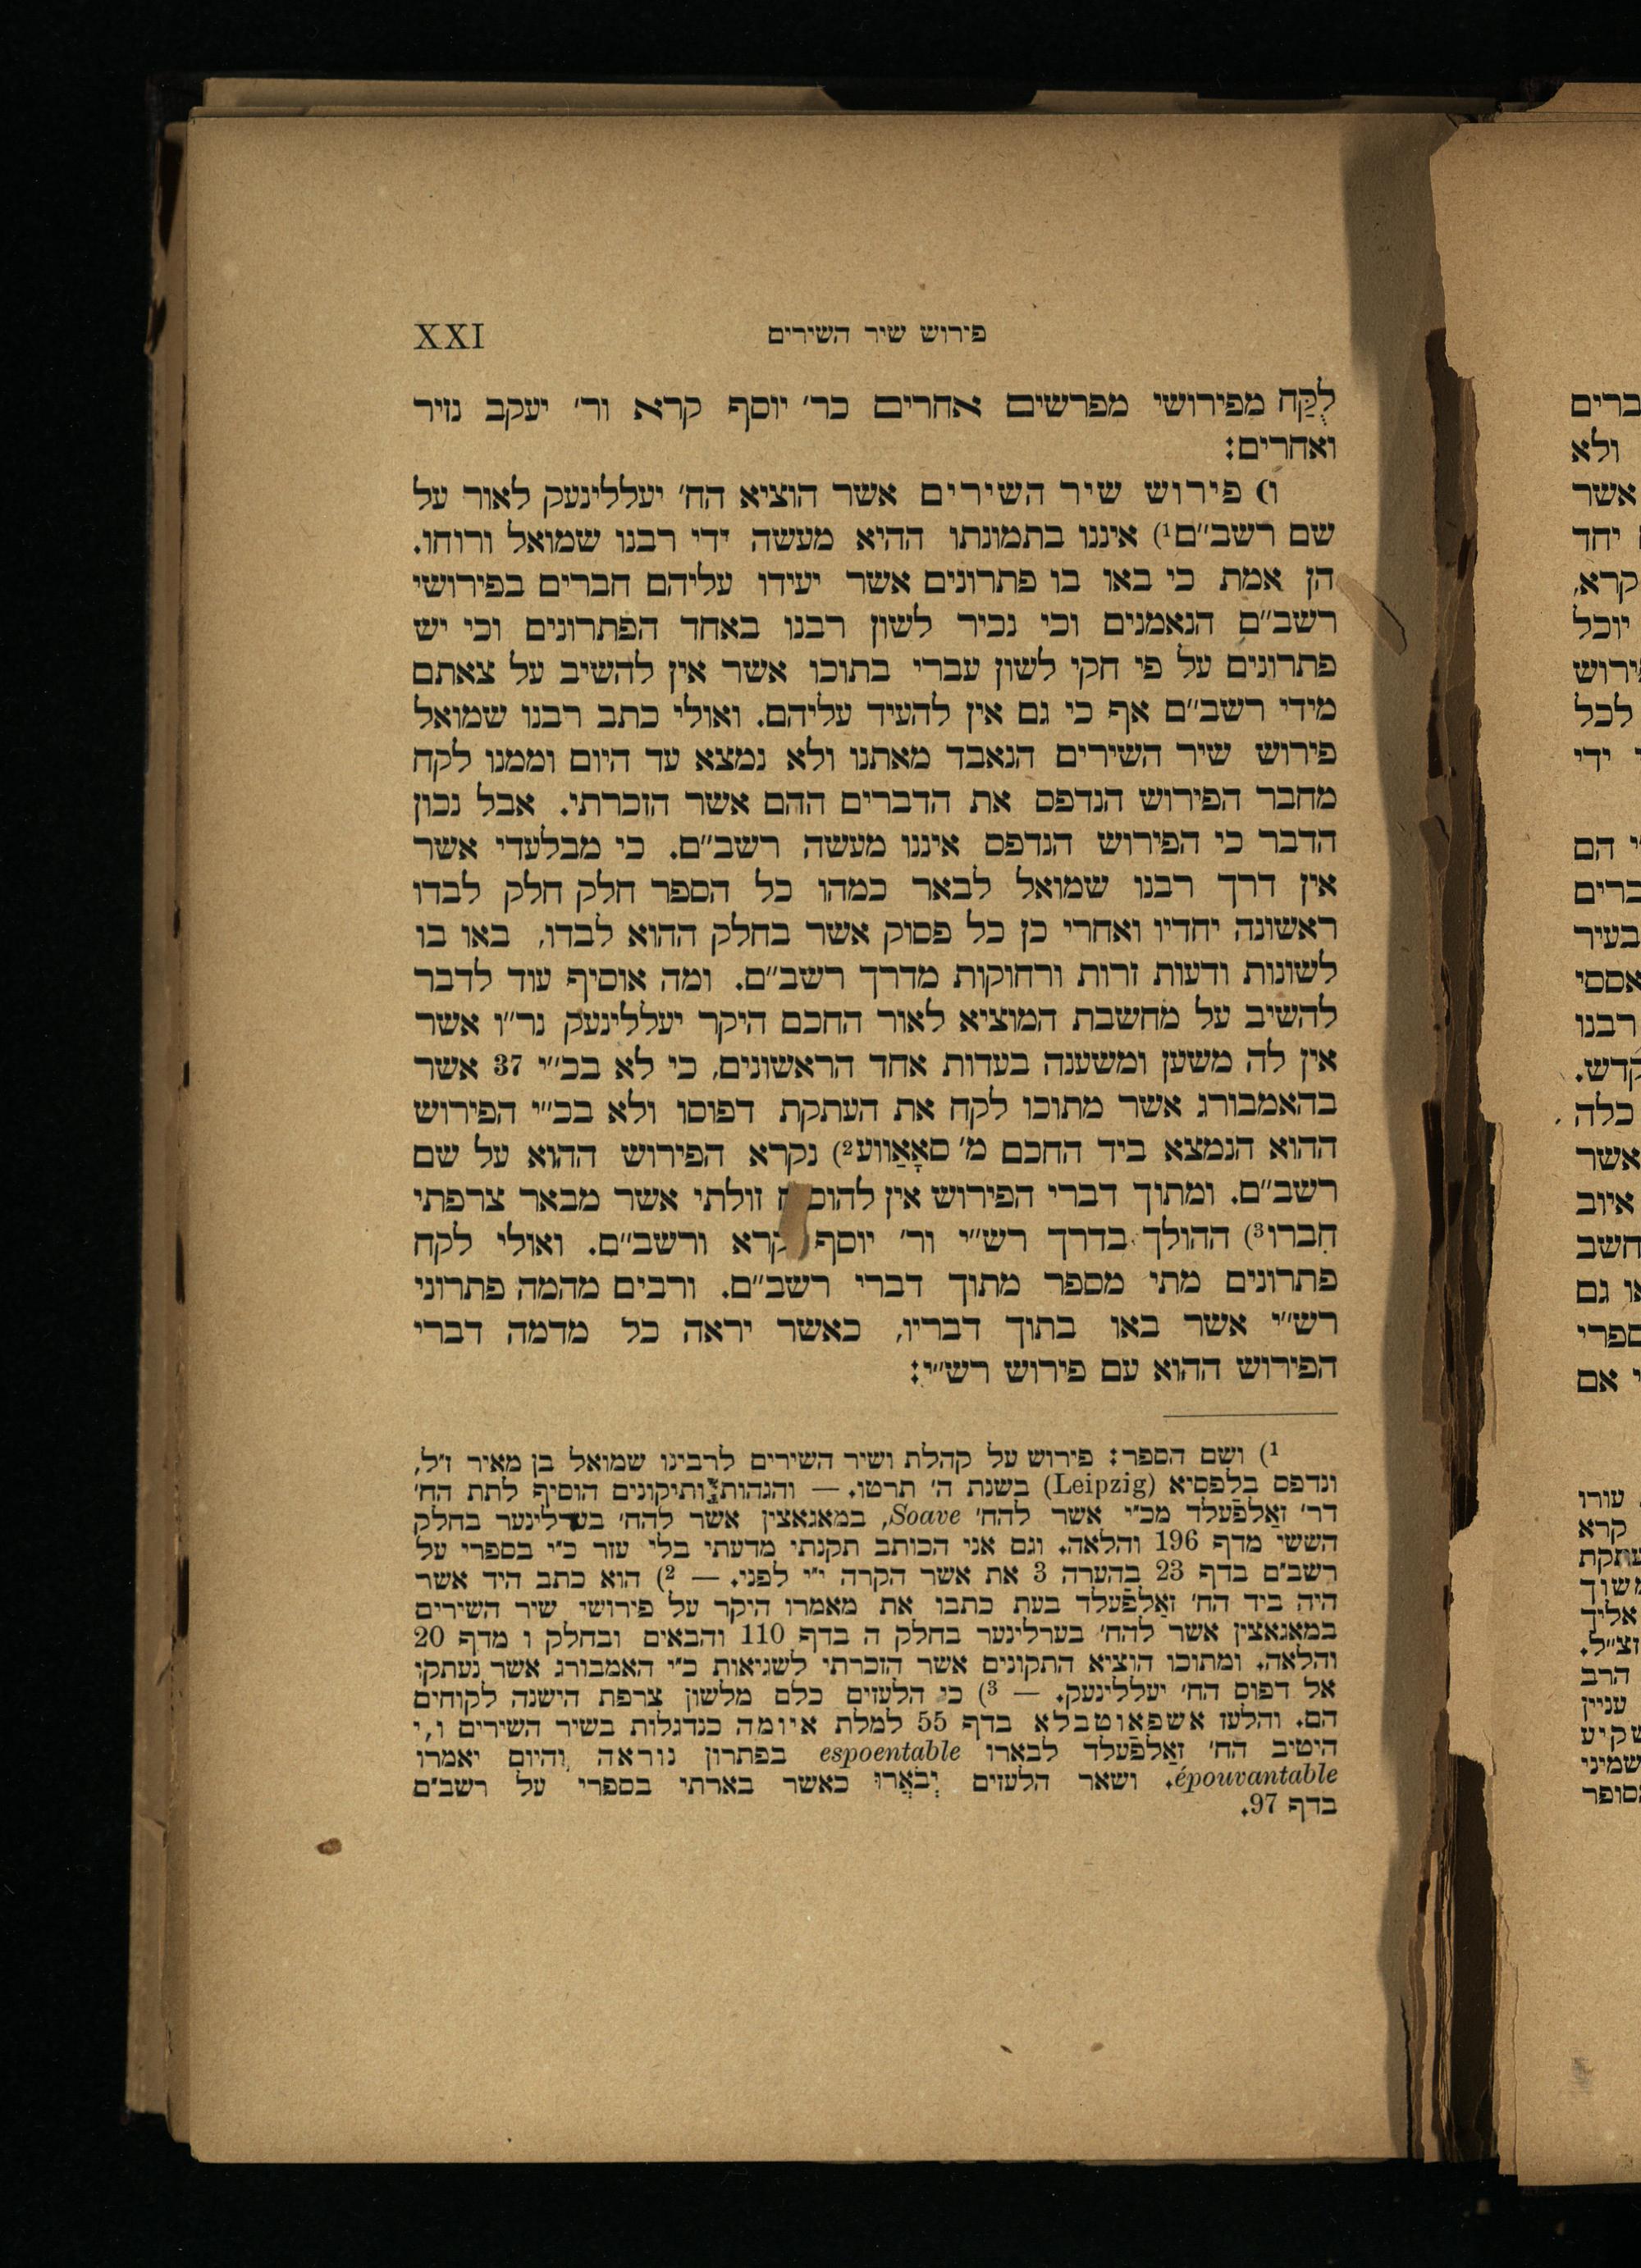 פירוש שיר השירים XXI
לְקַּח מפירושי מפרשים אחרים כר׳ יוסף קרא ור׳ יעקב נזיר
ואחרים:
ו) פירוש שיר השירים אשר הוציא הח׳ יעללינעק לאור על
שם רשב״ם¹) איננו בתמונתו ההיא מעשה ידי רבנו שמואל ורוחו.
הן אמת כי באו בו פתרונים אשר יעידו עליהם חברים בפירושי
רשב״ם הנאמנים וכי נכיר לשון רבנו באחד הפתרונים וכי יש
פתרונים על פי חקי לשון עברי בתוכו אשר אין להשיב על צאתם
מידי רשב״ם אף כי גם אין להעיד עליהם. ואולי כתב רבנו שמואל
פירוש שיר השירים הנאבד מאתנו ולא נמצא עד היום וממנו לקח
מחבר הפירוש הנדפס את הדברים ההם אשר הזכרתי. אבל נכון
הדבר כי הפירוש הנדפס איננו מעשה רשב״ם. כי מבלעדי אשר
אין דרך רבנו שמואל לבאר כמהו כל הספר חלק חלק לבדו
ראשונה יחדיו ואחרי כן כל פסוק אשר בחלק ההוא לבדו, באו בו
לשונות ודעות זרות ורחוקות מדרך רשב״ם. ומה אוסיף עוד לדבר
להשיב על מחשבת המוציא לאור החכם היקר יעללינעק נר״ו אשר
אין לה משען ומשענה בעדות אחד הראשונים, כי לא בכ״י 37 אשר
בהאמבורג אשר מתוכו לקח את העתקת דפוסו ולא בכ״י הפירוש
ההוא הנמצא ביד החכם מ׳ סאָאַווע²) נקרא הפירוש ההוא על שם
רשב״ם. ומתוך דברי הפירוש אין זולתי אשר מבאר צרפתי
חברו³) ההולך בדרך רש״י ור׳ יוסף קרא ורשב״ם. ואולי לקח
פתרונים מתי מספר מתוך דברי רשב״ם. ורבים מהמה פתרוני
רש״י אשר באו בתוך דבריו, כאשר יראה כל מדמה דברי
הפירוש ההוא עם פירוש רש״י:
¹) ושם הספר: פירוש על קהלת ושיר השירים לרבינו שמואל בן מאיר ז״ל,
ונדפס בלפסיא (Leipzig) בשנת ה׳ תרטו. — והגהות ותיקונים הוסיף לתת הח׳
דר׳ זאַלפֿעלד מכ״י אשר להח׳ Soave, במאגאצין אשר להח׳ בערלינער בחלק
הששי מדף 196 והלאה. וגם אני הכותב תקנתי מדעתי בלי עזר כ״י בספרי על
רשב״ם בדף 23 בהערה 3 את אשר הקרה י״י לפני. — ²) הוא כתב היד אשר
היה ביד הח׳ זאַלפֿעלד בעת כתבו את מאמרו היקר על פירושי שיר השירים
במאגאצין אשר להח׳ בערלינער בחלק ה בדף 110 והבאים ובחלק ו מדף 20
והלאה. ומתוכו הוציא התקונים אשר הזכרתי לשגיאות כ״י האמבורג אשר נעתקו
אל דפוס הח׳ יעללינעק. — ³) כי הלעזים כלם מלשון צרפת הישנה לקוחים
הם. והלעז אשפאוטבלא בדף 55 למלת איומה כנדגלות בשיר השירים ו,י
היטיב הח׳ זאַלפֿעלד לבארו espoentable בפתרון נוראה והיום יאמרו
épouvantable. ושאר הלעזים יְבֹאֲרוּ כאשר בארתי בספרי על רשב״ם
בדף 97.
ברים
ולא
אשר
יחד
קרא,
יוכל
ירוש
לכל
ידי
הם
ברים
בעיר
אססי
רבנו
קדש.
כלה
אשר
איוב
חשב
גם
ספרי
אם
עורו
קרא
עתקת
משוך
אליך
זצ״ל.
הרב
עניין
שקיע
שמיני
סופר